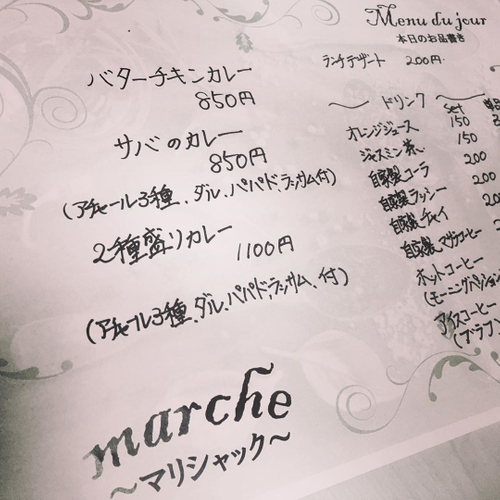 Menu du jour
本日のお品書き
ランチデザート 200円
バターチキンカレー
850円
サバのカレー
850円
(アチャール3種、ダル、パパド、ラッサム付)
2種盛りカレー
1100円
(アチャール3種、ダル、パパド、ラッサム、付)
〜 ドリンク 〜
set 単品
オレンジジュース 150
ジャスミン茶 150
自家製コーラ 200
自家製ラッシー 200
自家製チャイ 200
自家製マサラコーヒー
ホットコーヒー
(モーニングパッション
アイスコーヒー
(ブラフ
marche
〜マリシャック〜